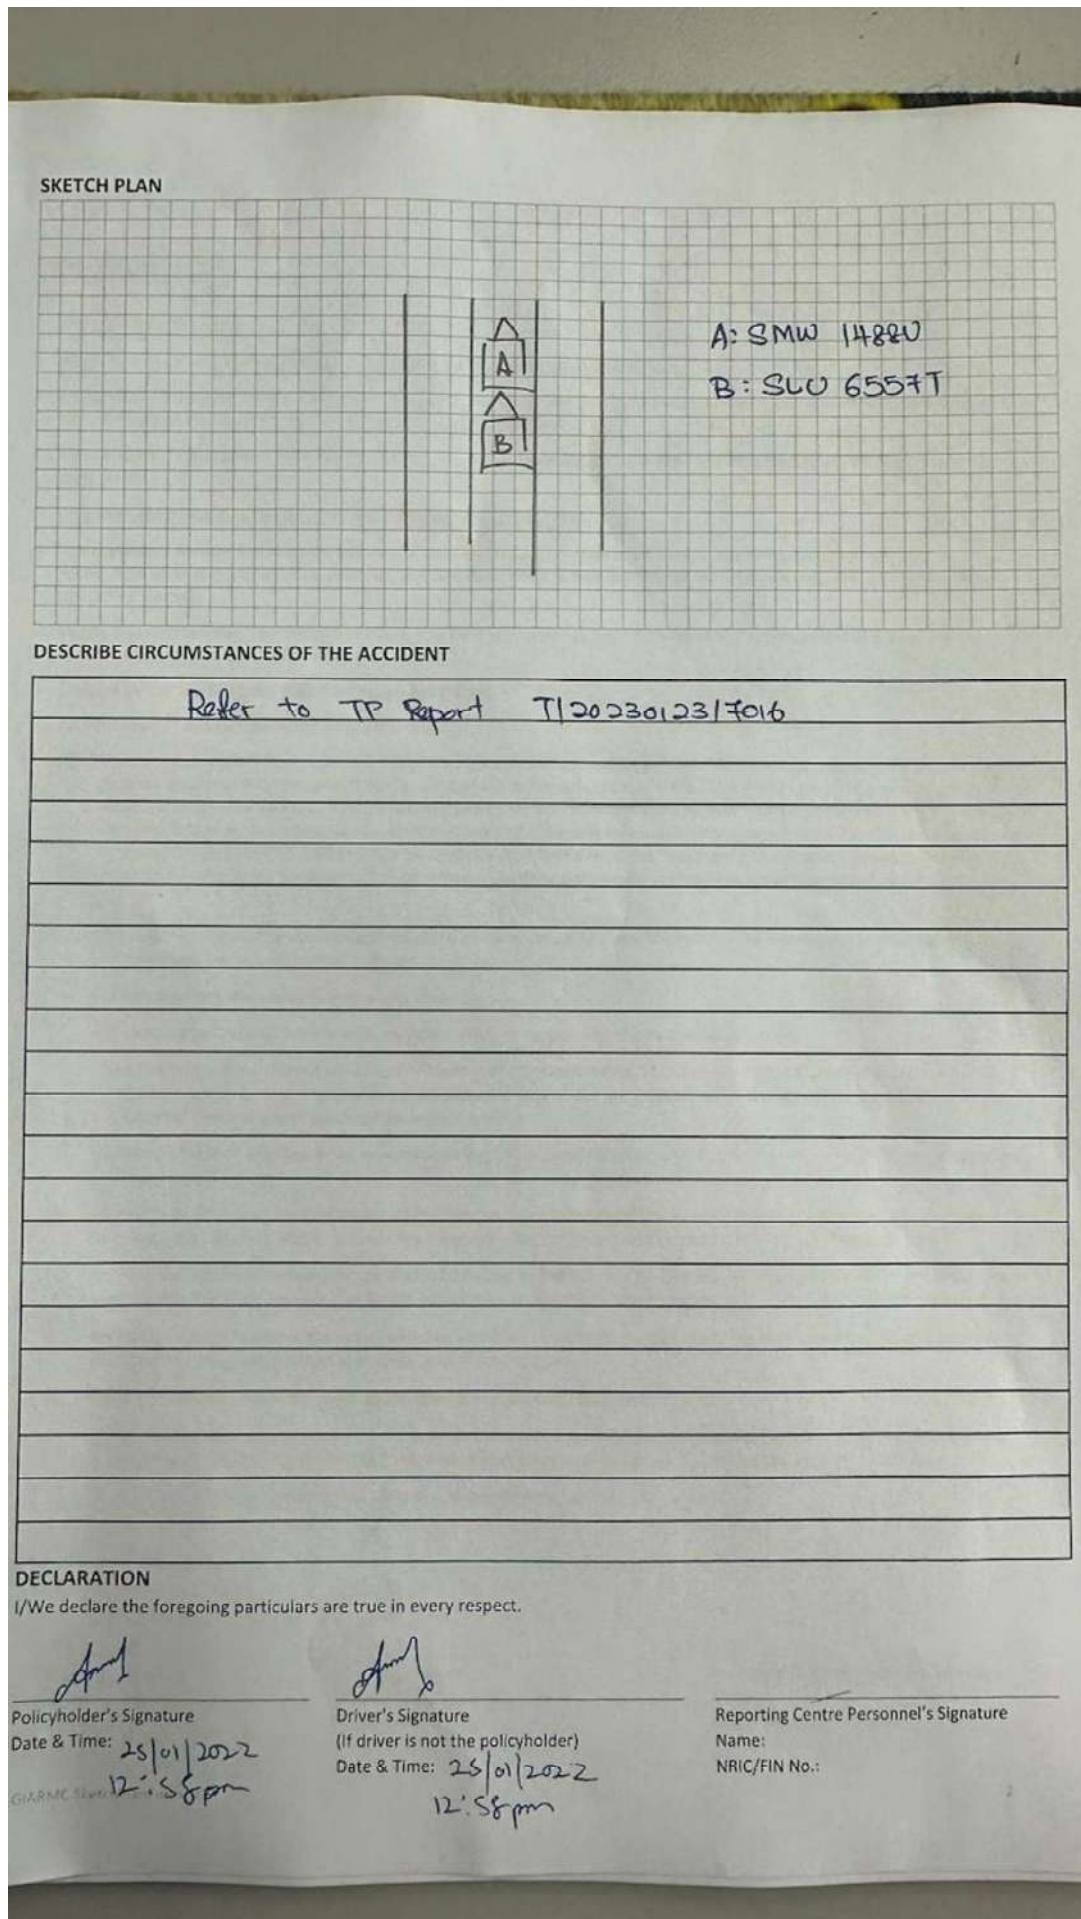 SKETCH PLAN
A
B
A: SMW 1488U
B: SLU 6557T
DESCRIBE CIRCUMSTANCES OF THE ACCIDENT
Refer to TP Report T/20230123/7016
DECLARATION
I/We declare the foregoing particulars are true in every respect.
Policyholder's Signature
Date & Time: 25/01/2022
12:58pm
Driver's Signature
(If driver is not the policyholder)
Date & Time: 25/01/2022
12:58pm
Reporting Centre Personnel's Signature
Name:
NRIC/FIN No.:
GIARMC